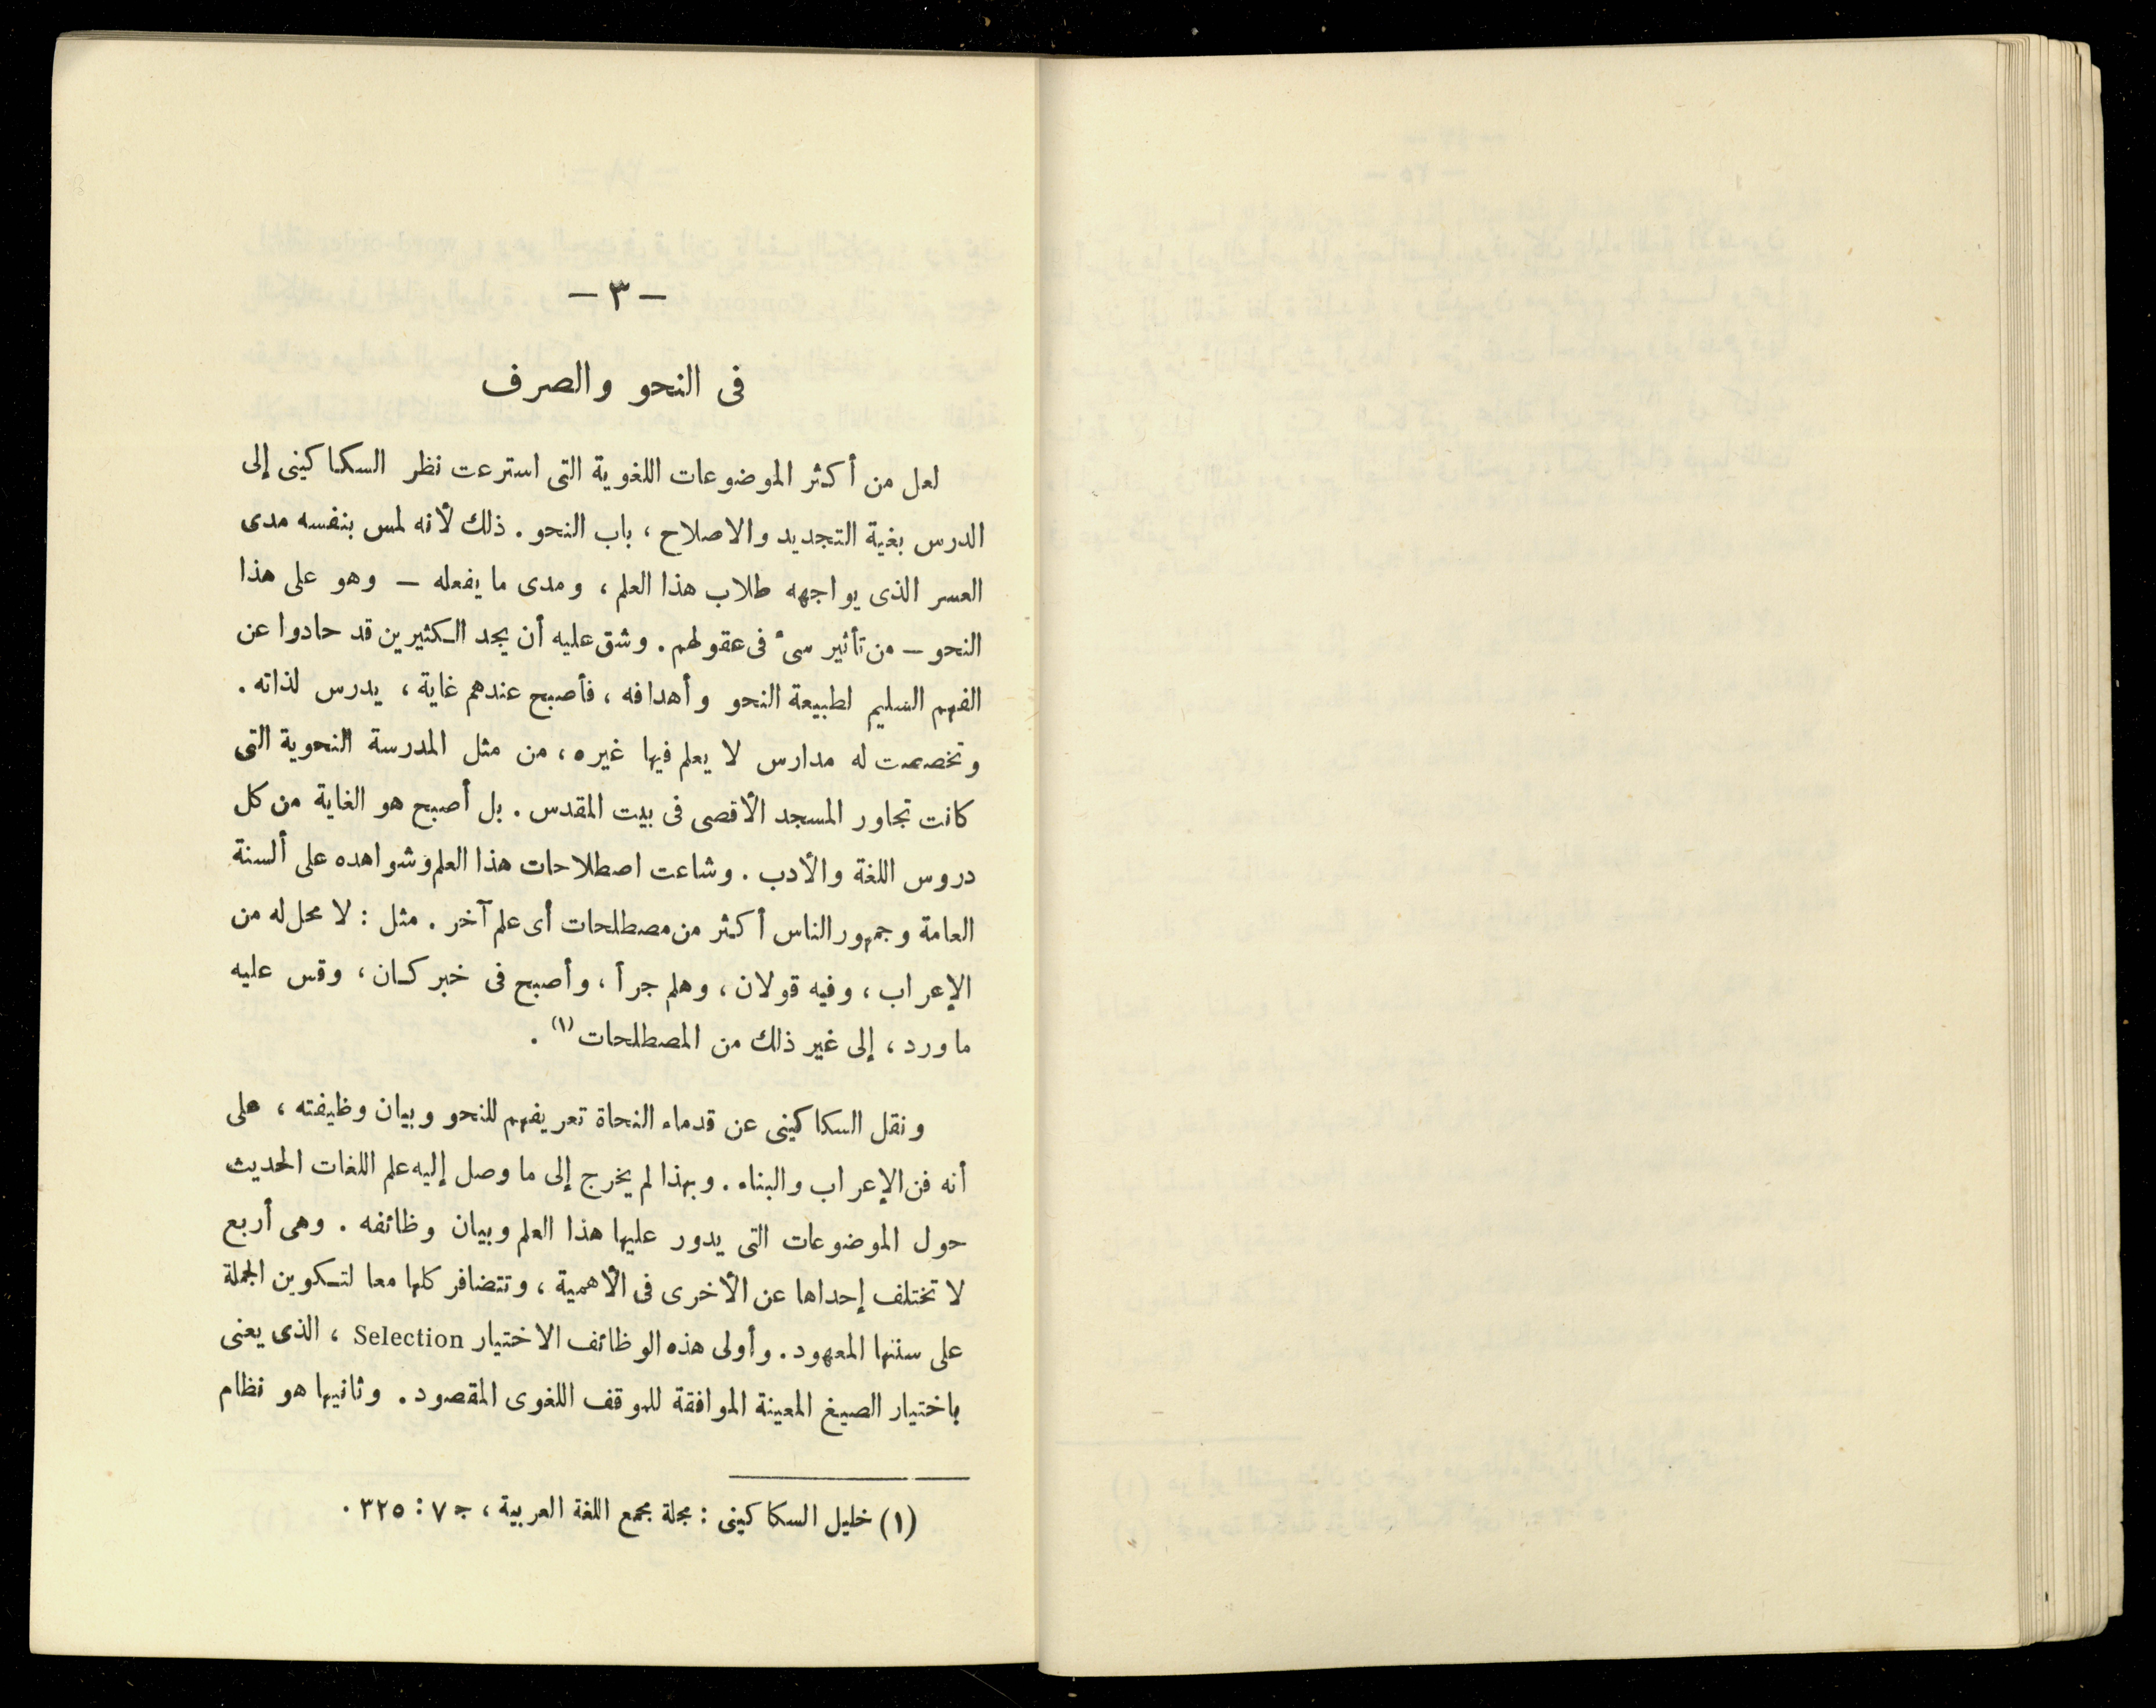 – ٣ –
فى النحو والصرف
لعل من أكثر الموضوعات اللغوية التى استرعت نظر السكاكينى إلى
الدرس بغية التجديد والاصلاح ، باب النحو . ذلك لأنه لمس بنفسه مدى
العسر الذى يواجهه طلاب هذا العلم ، ومدى ما يفعله – وهو على هذا
النحو – من تأثير سىء فى عقولهم . وشق عليه أن يجد الكثيرين قد حادوا عن
الفهم السليم لطبيعة النحو وأهدافه ، فأصبح عندهم غاية ، يدرس لذاته .
وتخصصت له مدارس لا يعلم فيها غيره ، من مثل المدرسة النحوية التى
كانت تجاور المسجد الأقصى فى بيت المقدس . بل أصبح هو الغاية من كل
دروس اللغة والأدب . وشاعت اصطلاحات هذا العلم وشواهده على ألسنة
العامة وجمهور الناس أكثر من مصطلحات أى علم آخر . مثل : لا محل له من
الإعراب ، وفيه قولان ، وهلم جرأ ، وأصبح فى خبر كان ، وقس عليه
ما ورد ، إلى غير ذلك من المصطلحات (١) .
ونقل السكاكينى عن قدماء النحاة تعريفهم للنحو وبيان وظيفته ، على
أنه فن الإعراب والبناء . وبهذا لم يخرج إلى ما وصل إليه علم اللغات الحديث
حول الموضوعات التى يدور عليها هذا العلم وبيان وظائفه . وهى أربع
لا تختلف إحداها عن الأخرى فى الأهمية ، وتتضافر كلها معا لتكوين الجملة
على سننها المعهود . وأولى هذه الوظائف الاختيار Selection ، الذى يعنى
باختيار الصيغ المعينة الموافقة للموقف اللغوى المقصود . وثانيها هو نظام
(١) خليل السكاكينى : مجلة مجمع اللغة العربية ، ج ٧ : ٣٢٥ .